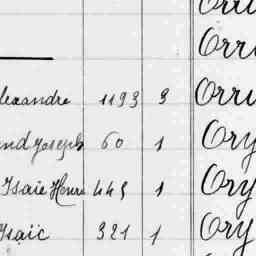 Orri
lexandre 1193 3 Orri
and Joseph 60 1 Ory
Isaïe Henri 445 1 Ory
Isaïe 321 1 Ory